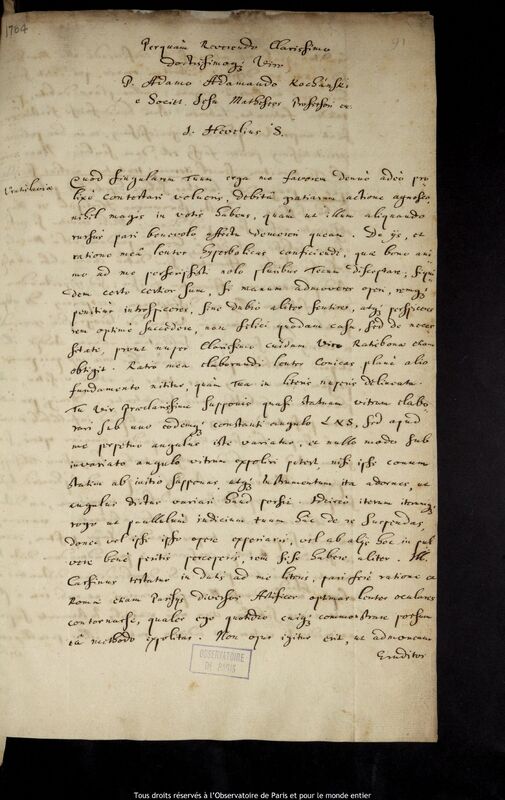 1704
91
Perquam Reverendo Clarissimo
doctissimoq; Viro
P. Adamo Adamando Kochanski
e Societ. Jesu Matheseos Professori &c.
J. Hevelius S.
Vratislaviæ
Quod singularem Tuum erga me favorem denuò adeò pro-
lixè contestari volueris, debitâ gratiarum actione agnosco,
nihil magis in votis habens, quàm ut illum aliquando
rursus pari benevolo affectu demereri queam. De ijs, et
ratione meâ lentes Hyperbolicas conficiendi, quæ bono ani-
mo ad me perscripsisti nolo pluribus Tecum disceptare, siqui-
dem certo certior sum, si manum admoveres operi, remq;
penitius introspiceres, sine dubio aliter sentires, atq; perspiceres
rem optimè succedere, non felici quodam casu, sed de neces-
sitate, prout nuper Clarissimo cuidam Viro Ratisbonæ etiam
obtigit. Ratio mea elaborandi lentes Conicas planè alio
fundamento nititur, quàm Tua in literis nuperis delineata.
Tu Vir Præclarissime supponis quasi statuam vitrum elabo-
rari sub uno eodemq; constanti angulo LXS, sed apud
me perpetuo angulus iste variatur, et nullo modo sub
invariato angulo vitrum expoliri potest, nisi ipse conum
statim ab initio supponas, atq; Instrumentum ita adornes, ut
angulus dictus variari haud possit. Idcircò iterum iterumq;
rogo ut paullulùm judicium tuum hac de re suspendas,
donec vel ipse ipso opere experiaris, vel ab alijs hoc in pul-
vere benè peritis perceperis, rem sese habere aliter. Ill.
Cassinus testatur in datis ad me literis, pari ferè ratione et
Romæ etiam Parisijs diversos Artifices optimas lentes oculares
contornasse, quales ego quotidie cuiq; commonstrare possum
eâ methodo expolitas. Non opus igitur erit, ut admoneam
Eruditos
OBSERVATOIRE
DE PARIS
Tous droits réservés à l'Observatoire de Paris et pour le monde entier